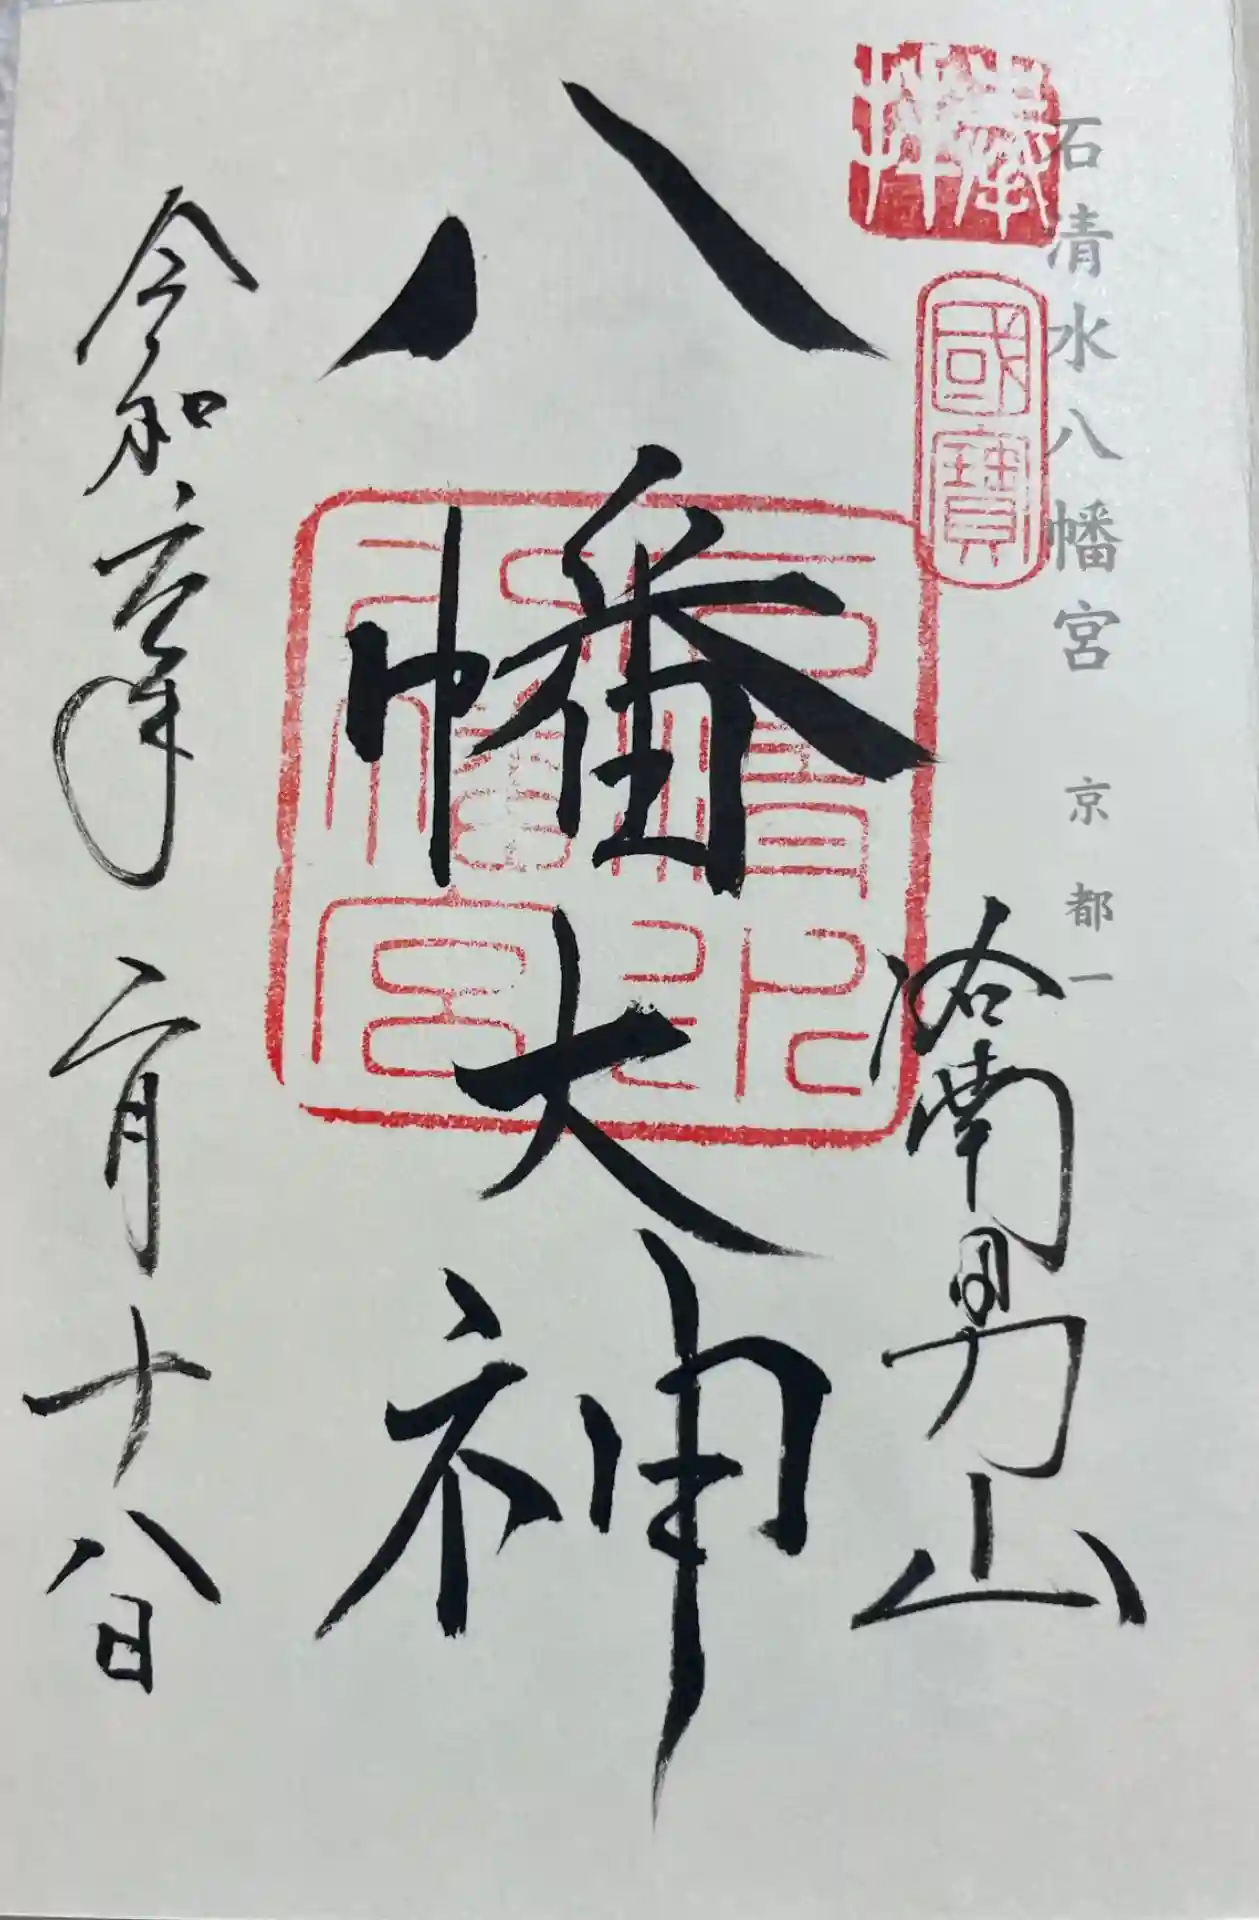 石清水八幡宮 京都一
奉拝
國寶
洛南男山
八幡大神
石清水八幡宮印
令和六年二月十八日